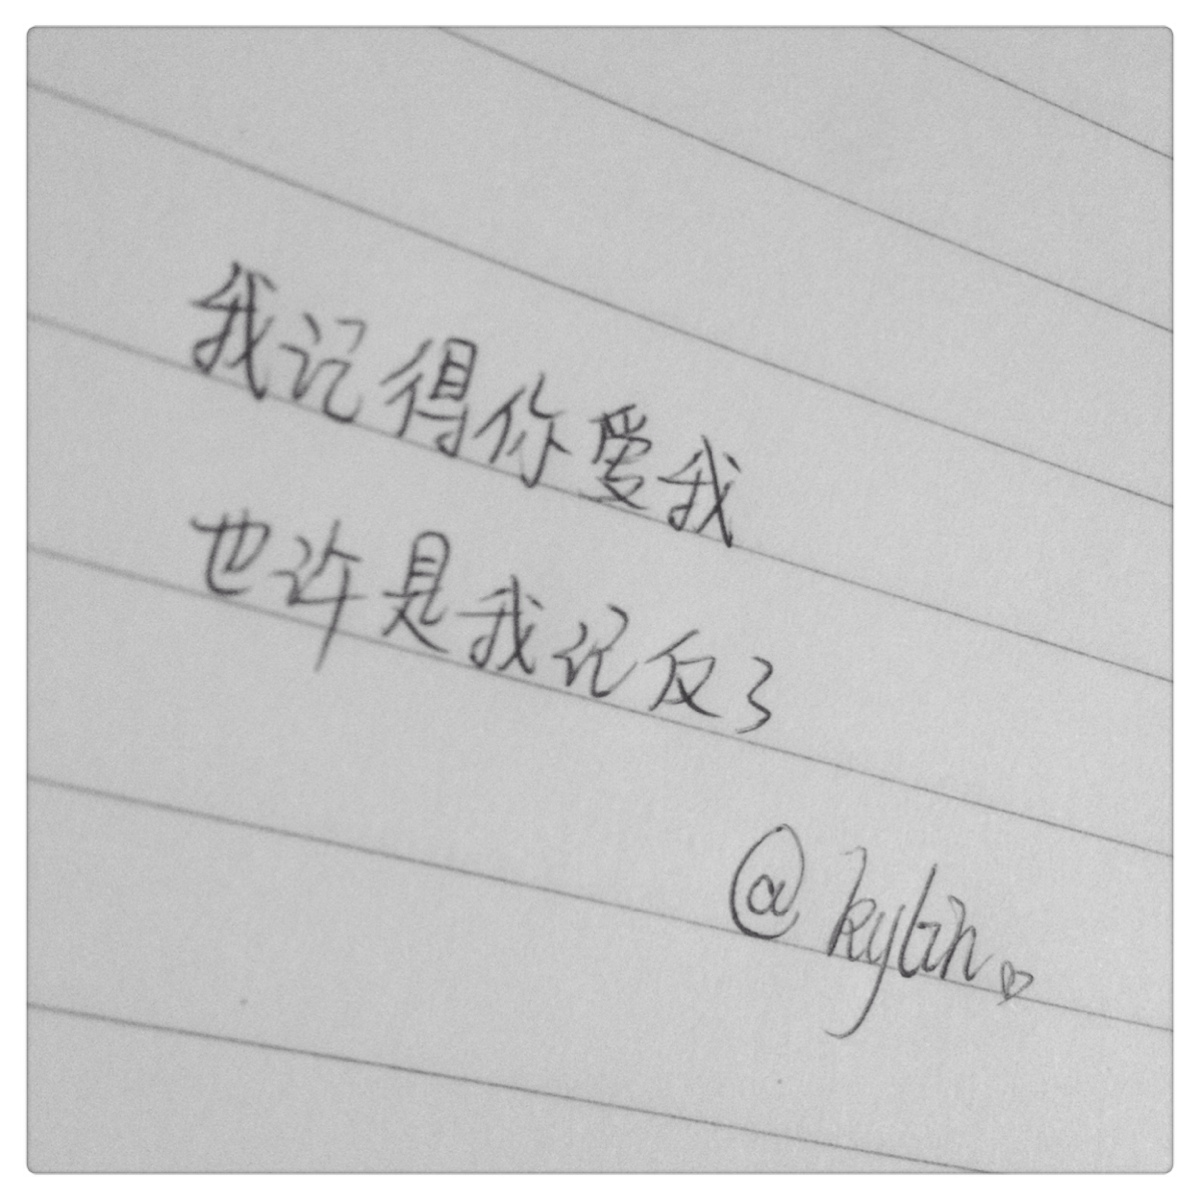 我记得你爱我
也许是我记反了
@kylin♡